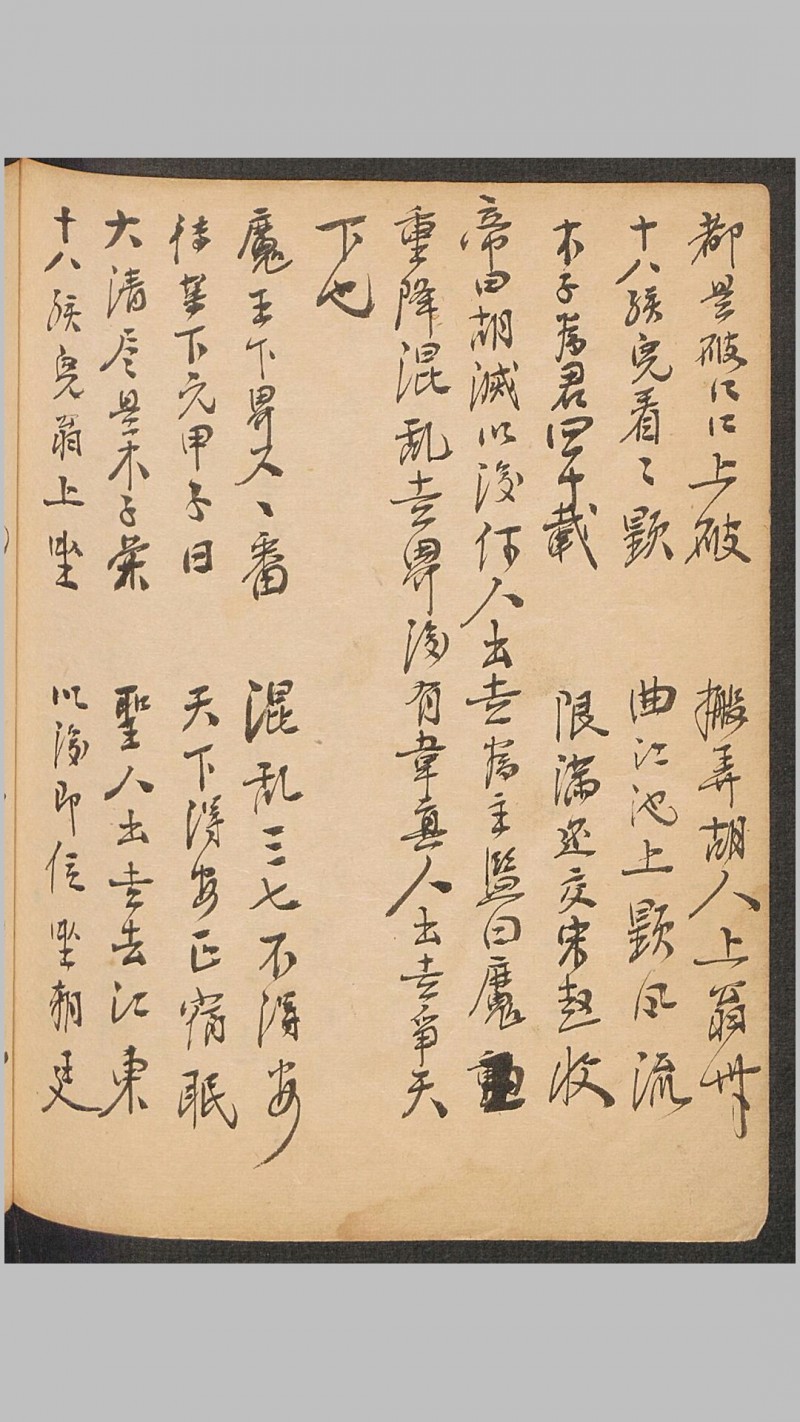 都是破仁仁上破 搬弄胡人上翁
十八孩兒看〻顥 曲江池上顥風流
木子為君四十載 限滿还交宋趙收
帝曰胡滅以後何人出去為主監曰魔
重降混乱去界後有韋真人出去爭天
下也
魔王下界大〻番 混乱三七不得安
待業下元甲子日 天下得安正霄眠
大清尽是木子葉 聖人出去去江東
十八孩兒翁上坐 以後即位坐朝廷